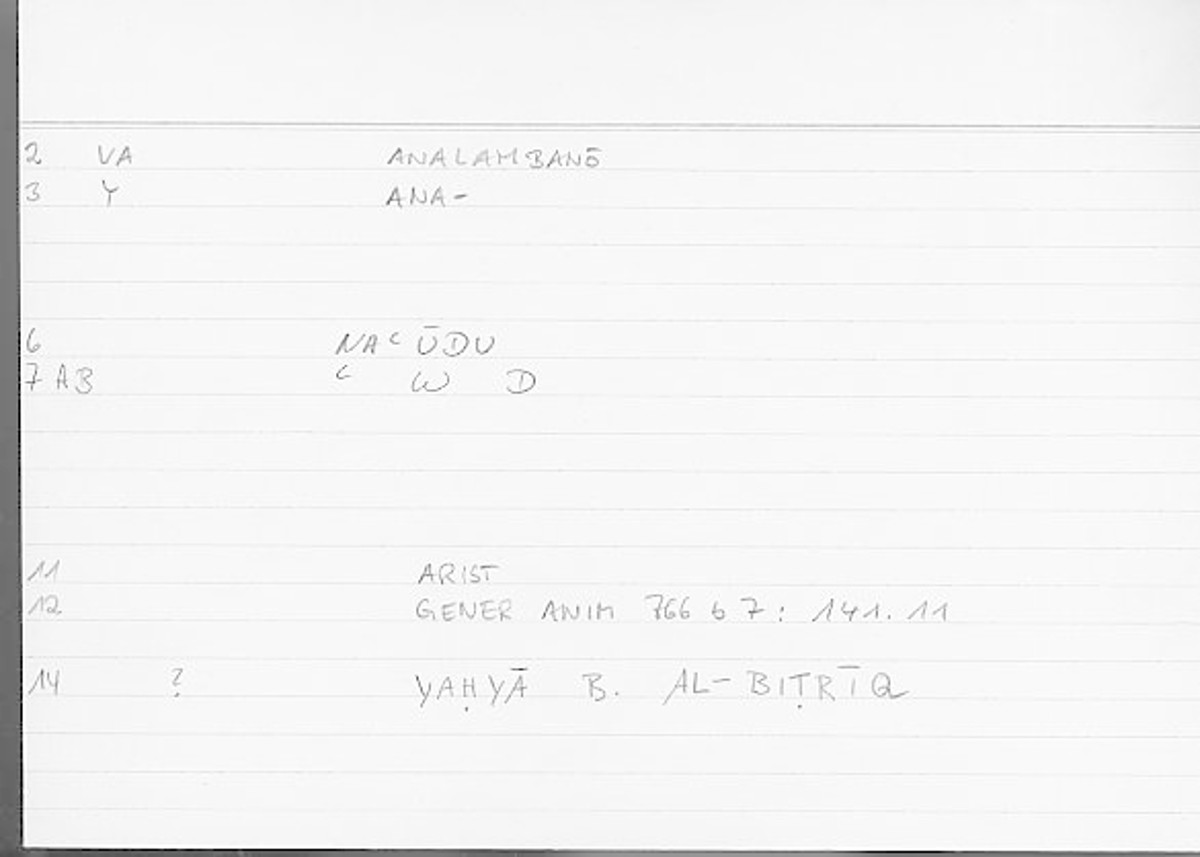 2 VA ANALAMBANŌ
3 Y ANA-
6 NAʿŪDU
7 AB ʿ W D
11 ARIST
12 GENER ANIM 766 b 7: 141.11
14 ? YAḤYĀ B. AL-BIṬRĪQ